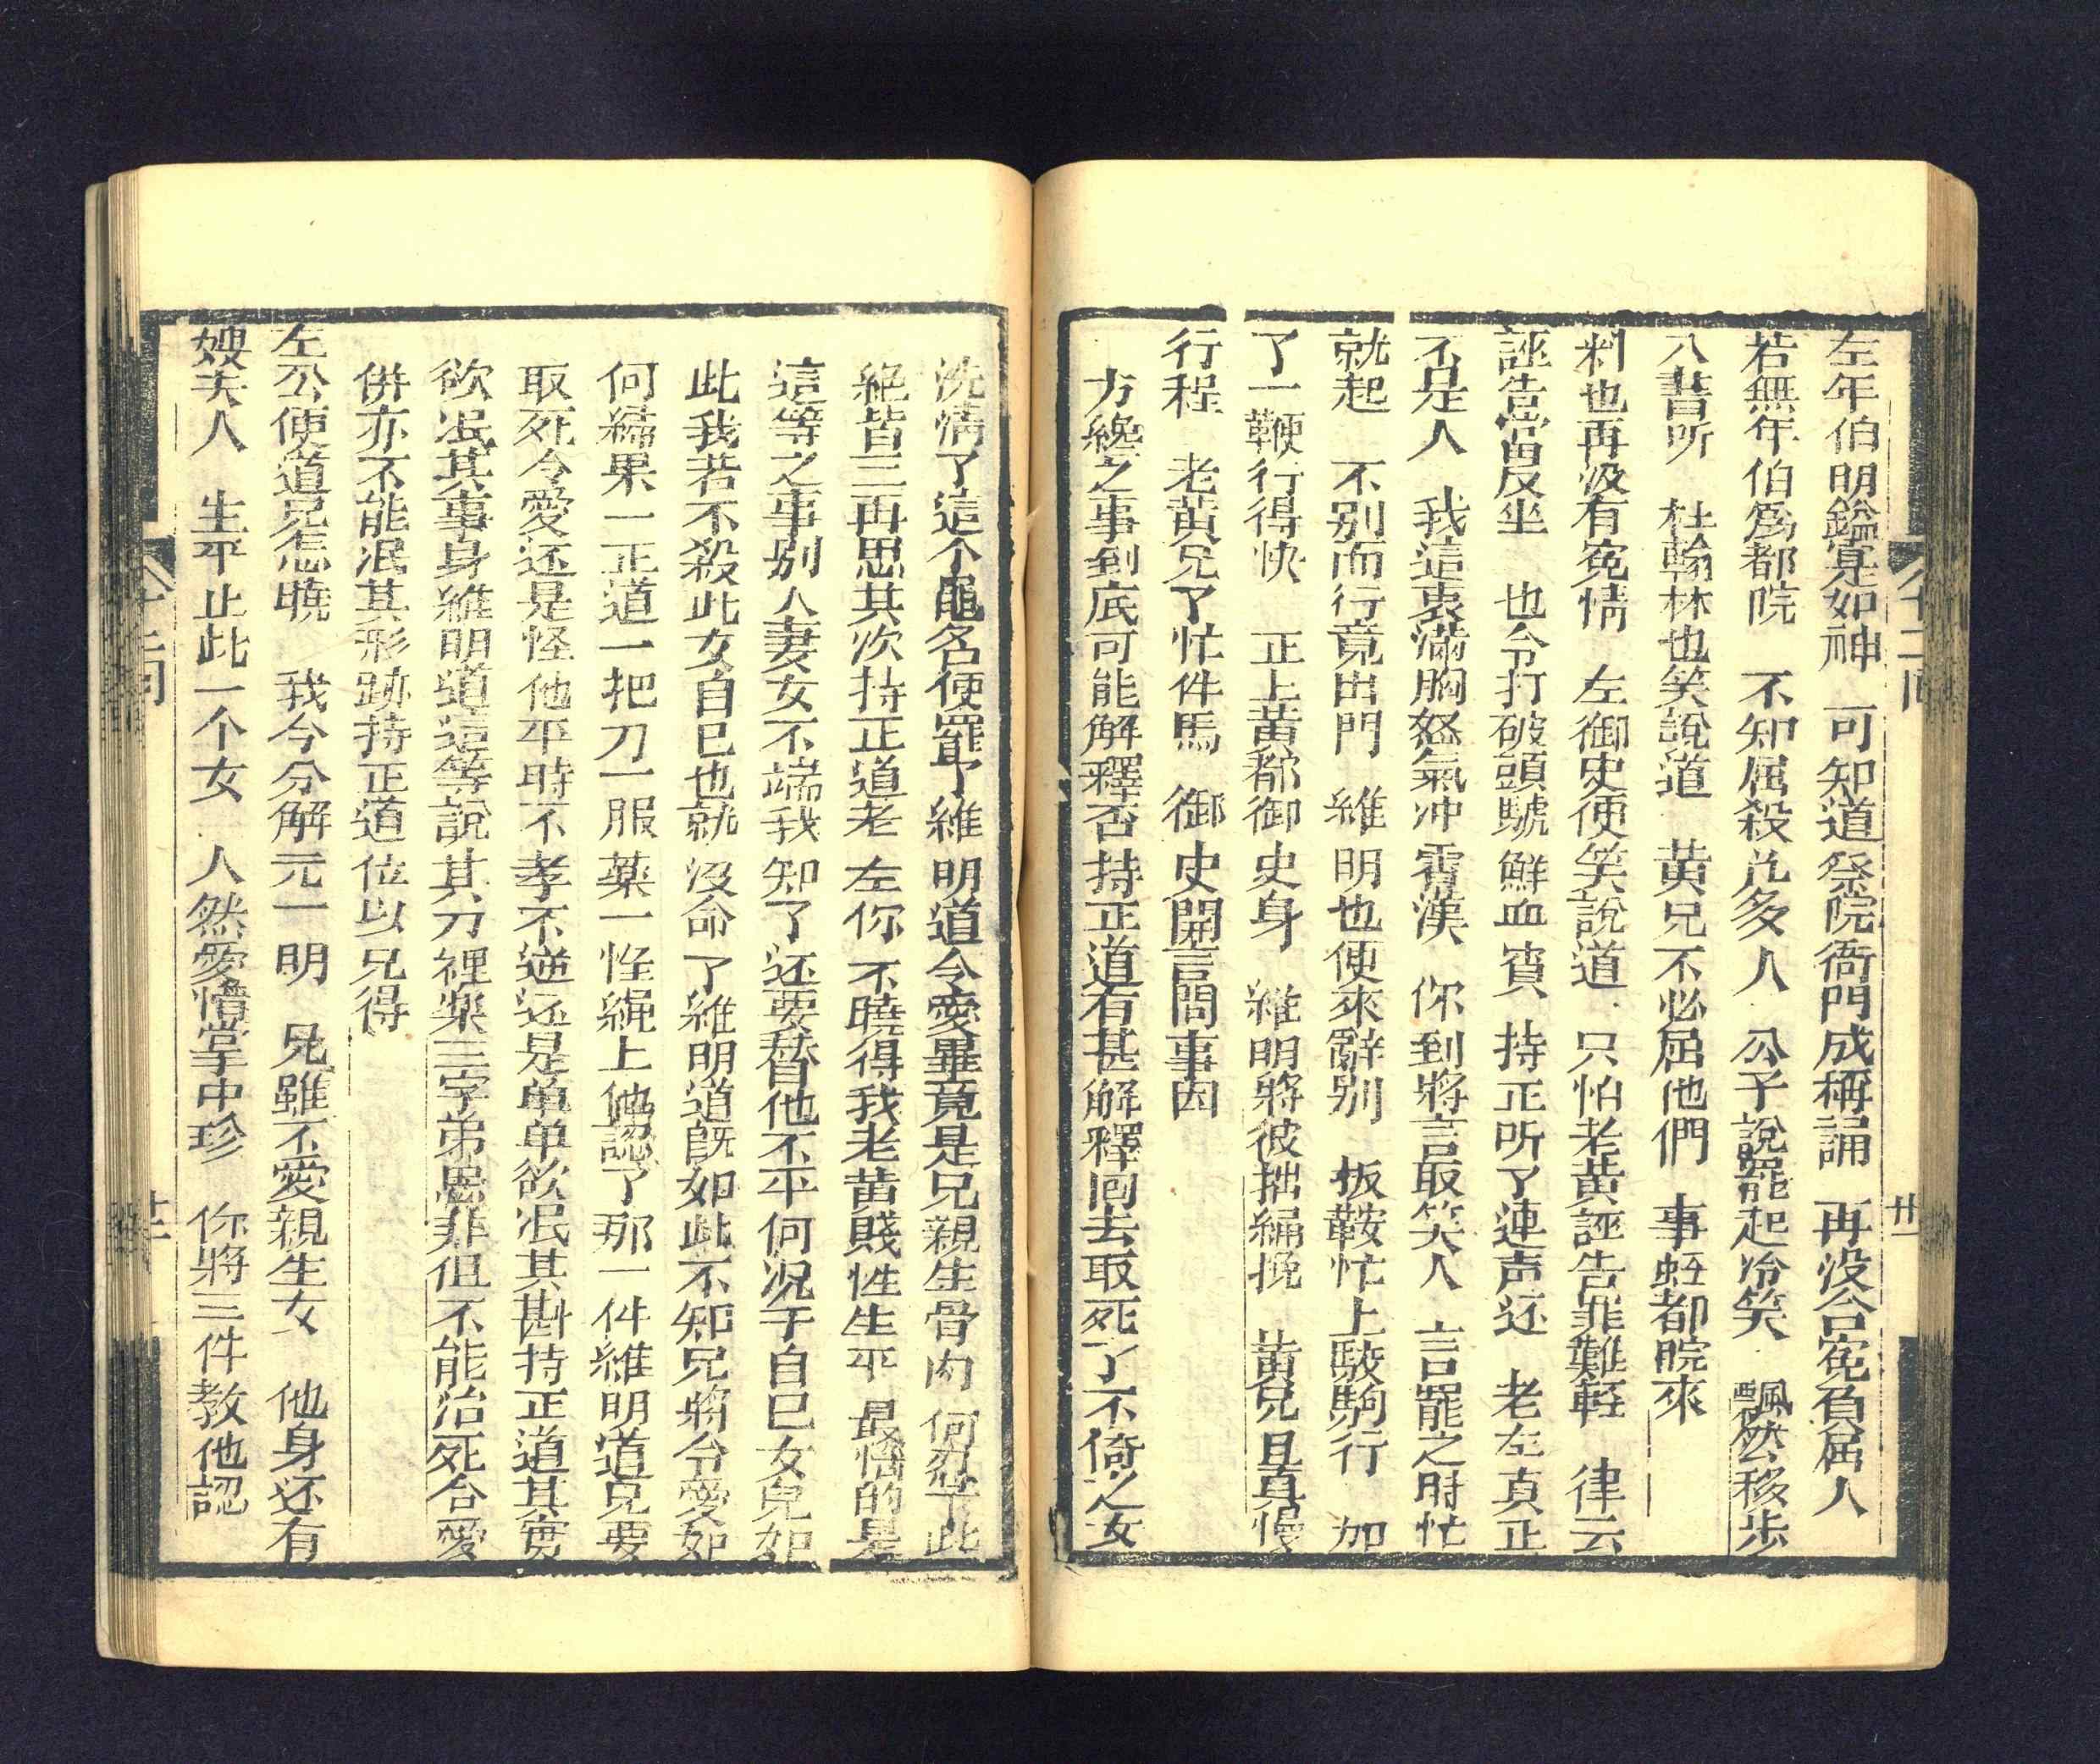 左年伯明鑑寔如神　可知道察院衙門成稱誦　再没含寃負屈人
若無年伯為都院　不知屈殺凢多人　公子說罷起冷笑　飄然移步
入書所　杜翰林也笑說道　黄兄不必屈他們　事蛭都院來
料也再没有寃情　左御史便笑說道　只怕老黄誣告罪難輕　律云
誣告當反坐　也令打破頭號鮮血賁　持正听了連声还　老左真正
不是人　我這裏滿胸怒氣冲霄漢　你到將言取笑人　言罷之时忙
就起　不别而行竟出門　維明也便來辭别　扳鞍忙上駿駒行　加
了一鞭行得快　正上黄都御史身　維明將彼拙綳挽　黄兄且真慢
行程　老黄兄了忙件馬　御史開言問事因
方纔之事到底可能解釋否持正道有甚解釋回去取死了不倚之女
洗情了這个龜名便罷了維明道令愛畢竟是兄親生骨肉何忍下此
絕皆三再思其次持正道老左你不曉得我老黄賤性生平最惱的是
這等之事别人妻女不端我知了还要替他不平何况于自已女兒如
此我若不殺此女自已也就没命了維明道旣如此不知兄將令愛如
何結果一正道一把刀一服藥一恠繩上傯認了那一件維明道兄要
取死令愛还是怪他平時不孝不遜还是单单欲泯其斟持正道其寔
欲泯其事身維明道這等說其刀裡藥三字弟愚非但不能治死合愛
併亦不能泯其形跡持正道位以兄得
左公便道兄怎曉　我今分解元一明　兄雖不愛親生女　他身还有
嫂夫人　生平止此一个女　人然愛惜掌中珍　你將三件教他認